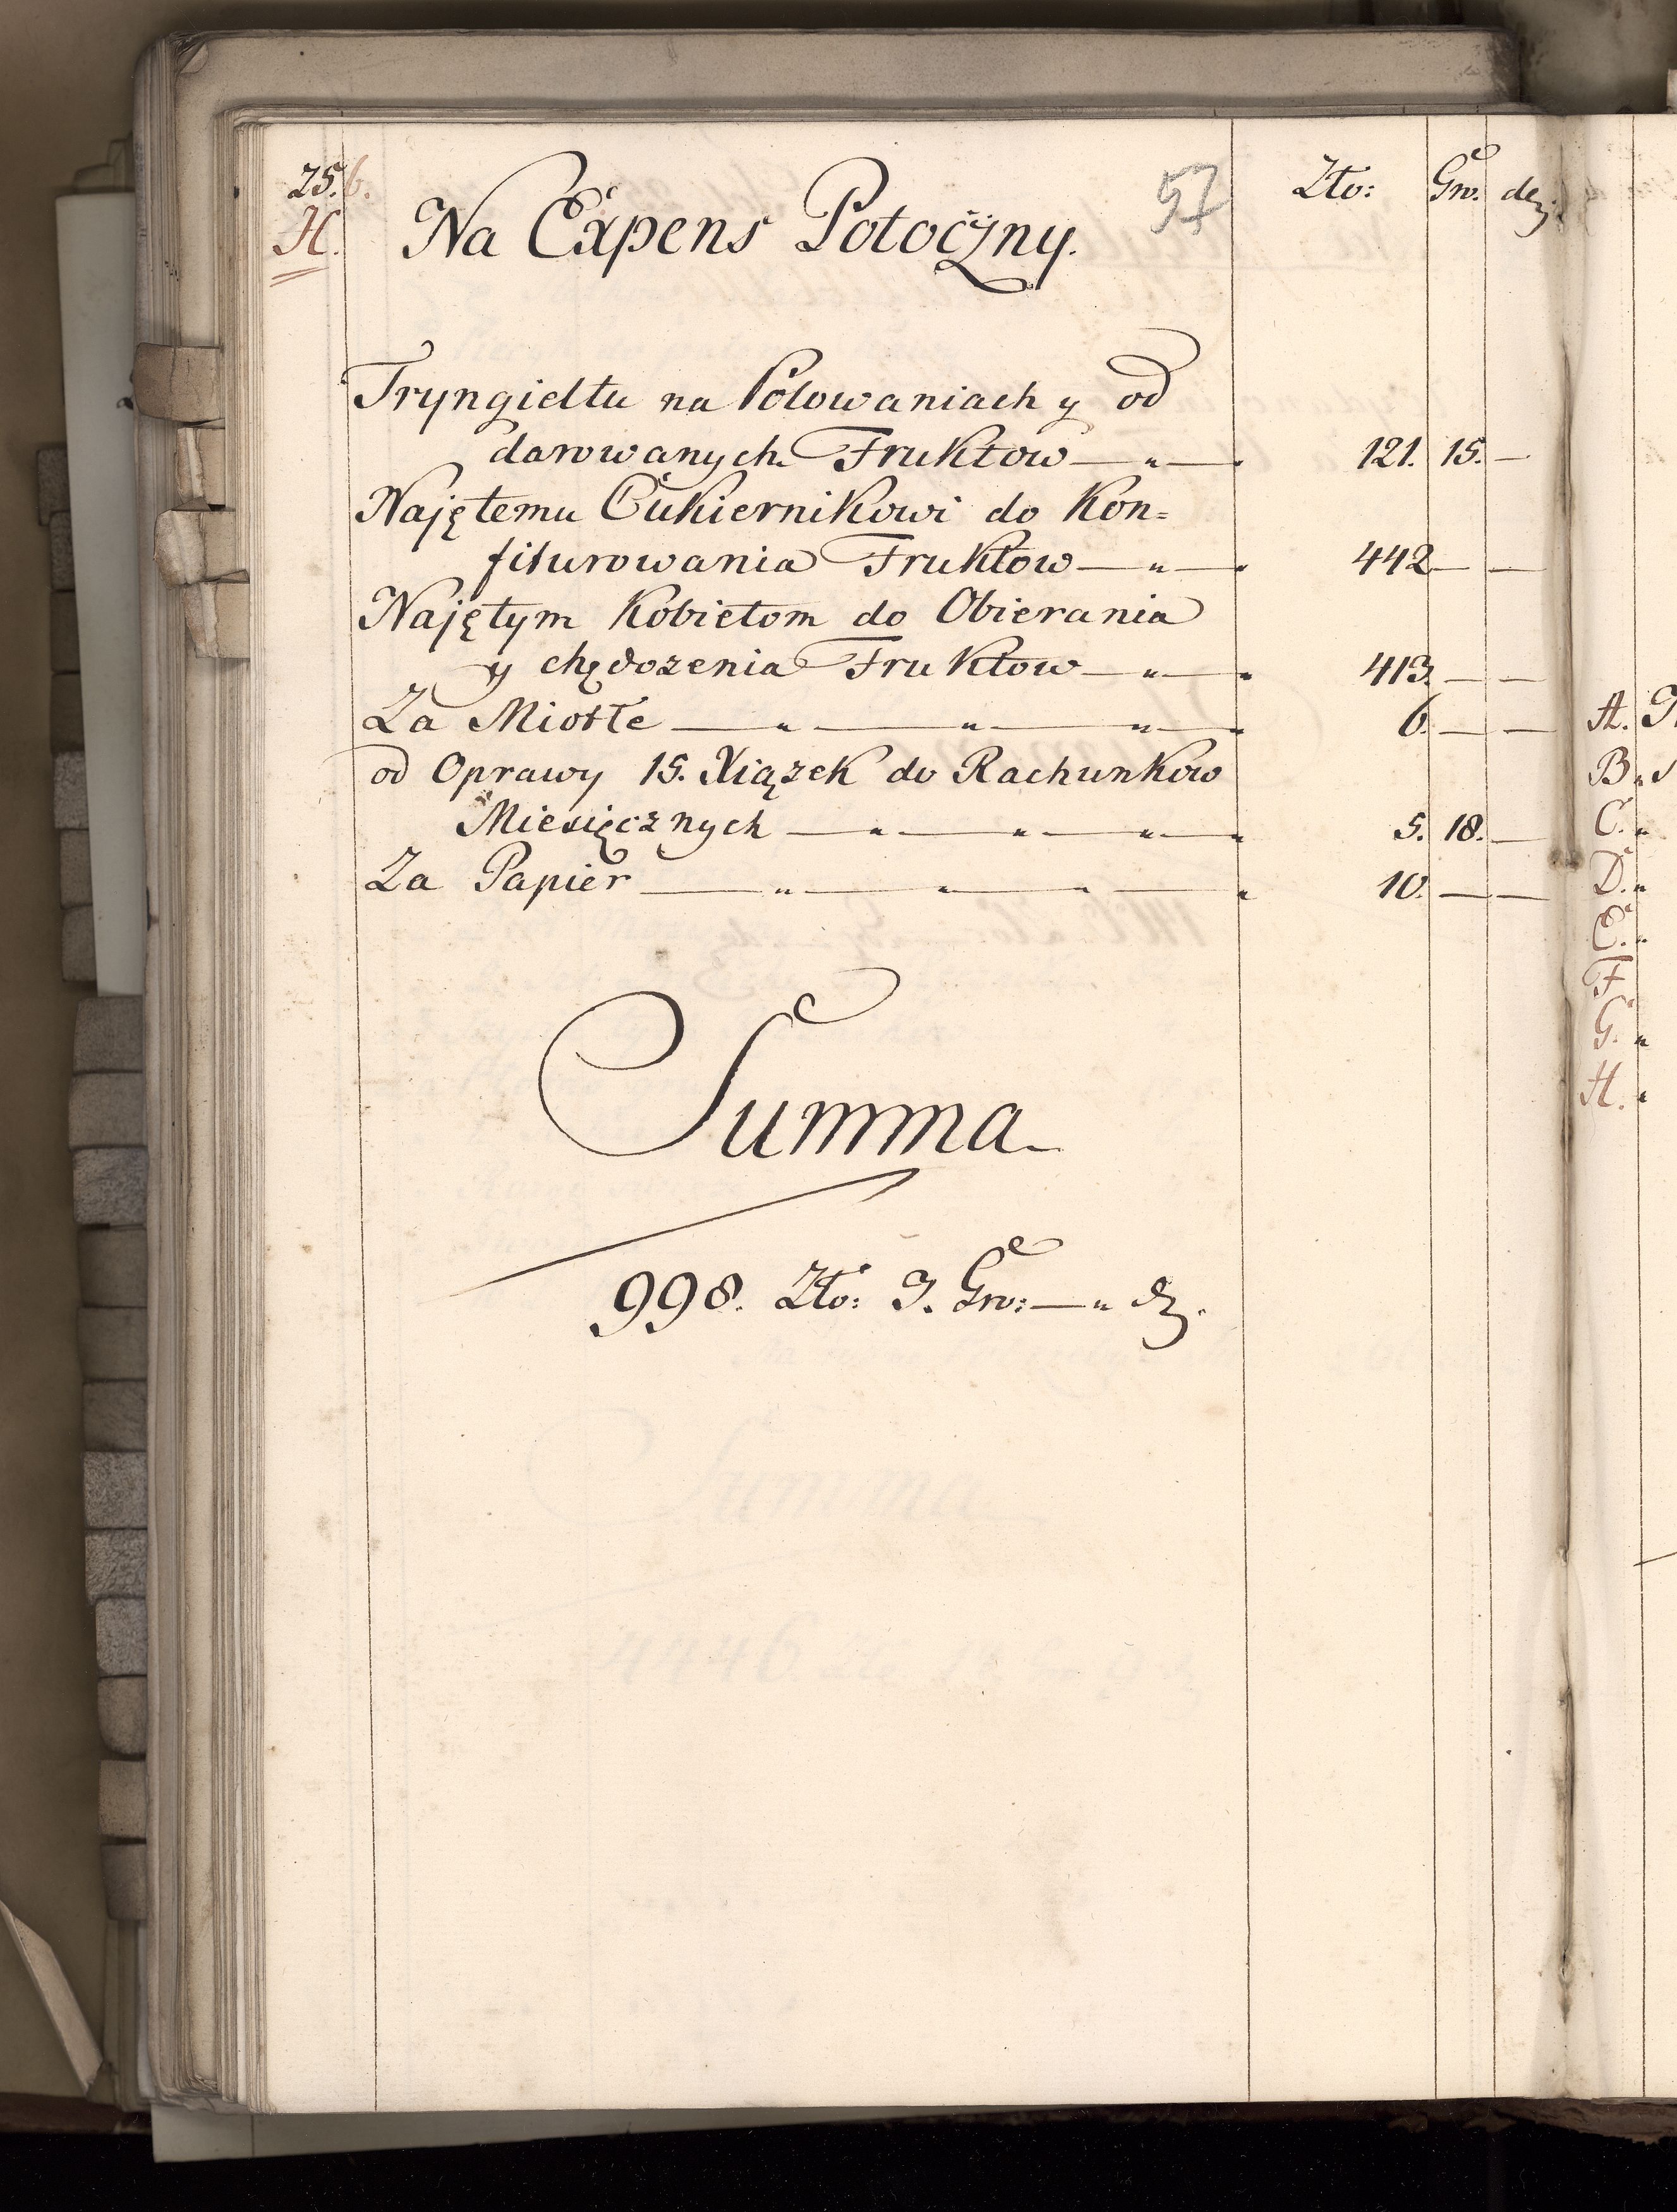 25.6. 57 Zło: Gro. den:
H. Na Expens Potoczny.
Tryngieltu na Polowaniach y od
darowanych Fruktow —„— 121. 15. —
Najętemu Cukiernikowi do Kon=
fiturowania Fruktow —„— 442 — —
Najętym Kobietom do Obierania
y chędożenia Fruktow —„— 413. — —
Za Miotłe —„—„—„— 6. — —
od Oprawy 15. Xiążek do Rachunkow
Miesięcznych —„—„—„— 5. 18. —
Za Papier —„—„—„— 10. — —
Summa
998. Zło: 3. Gro: —„ d.
A.
B.„
C.„
D.„
E.„
F
G.„
H.„